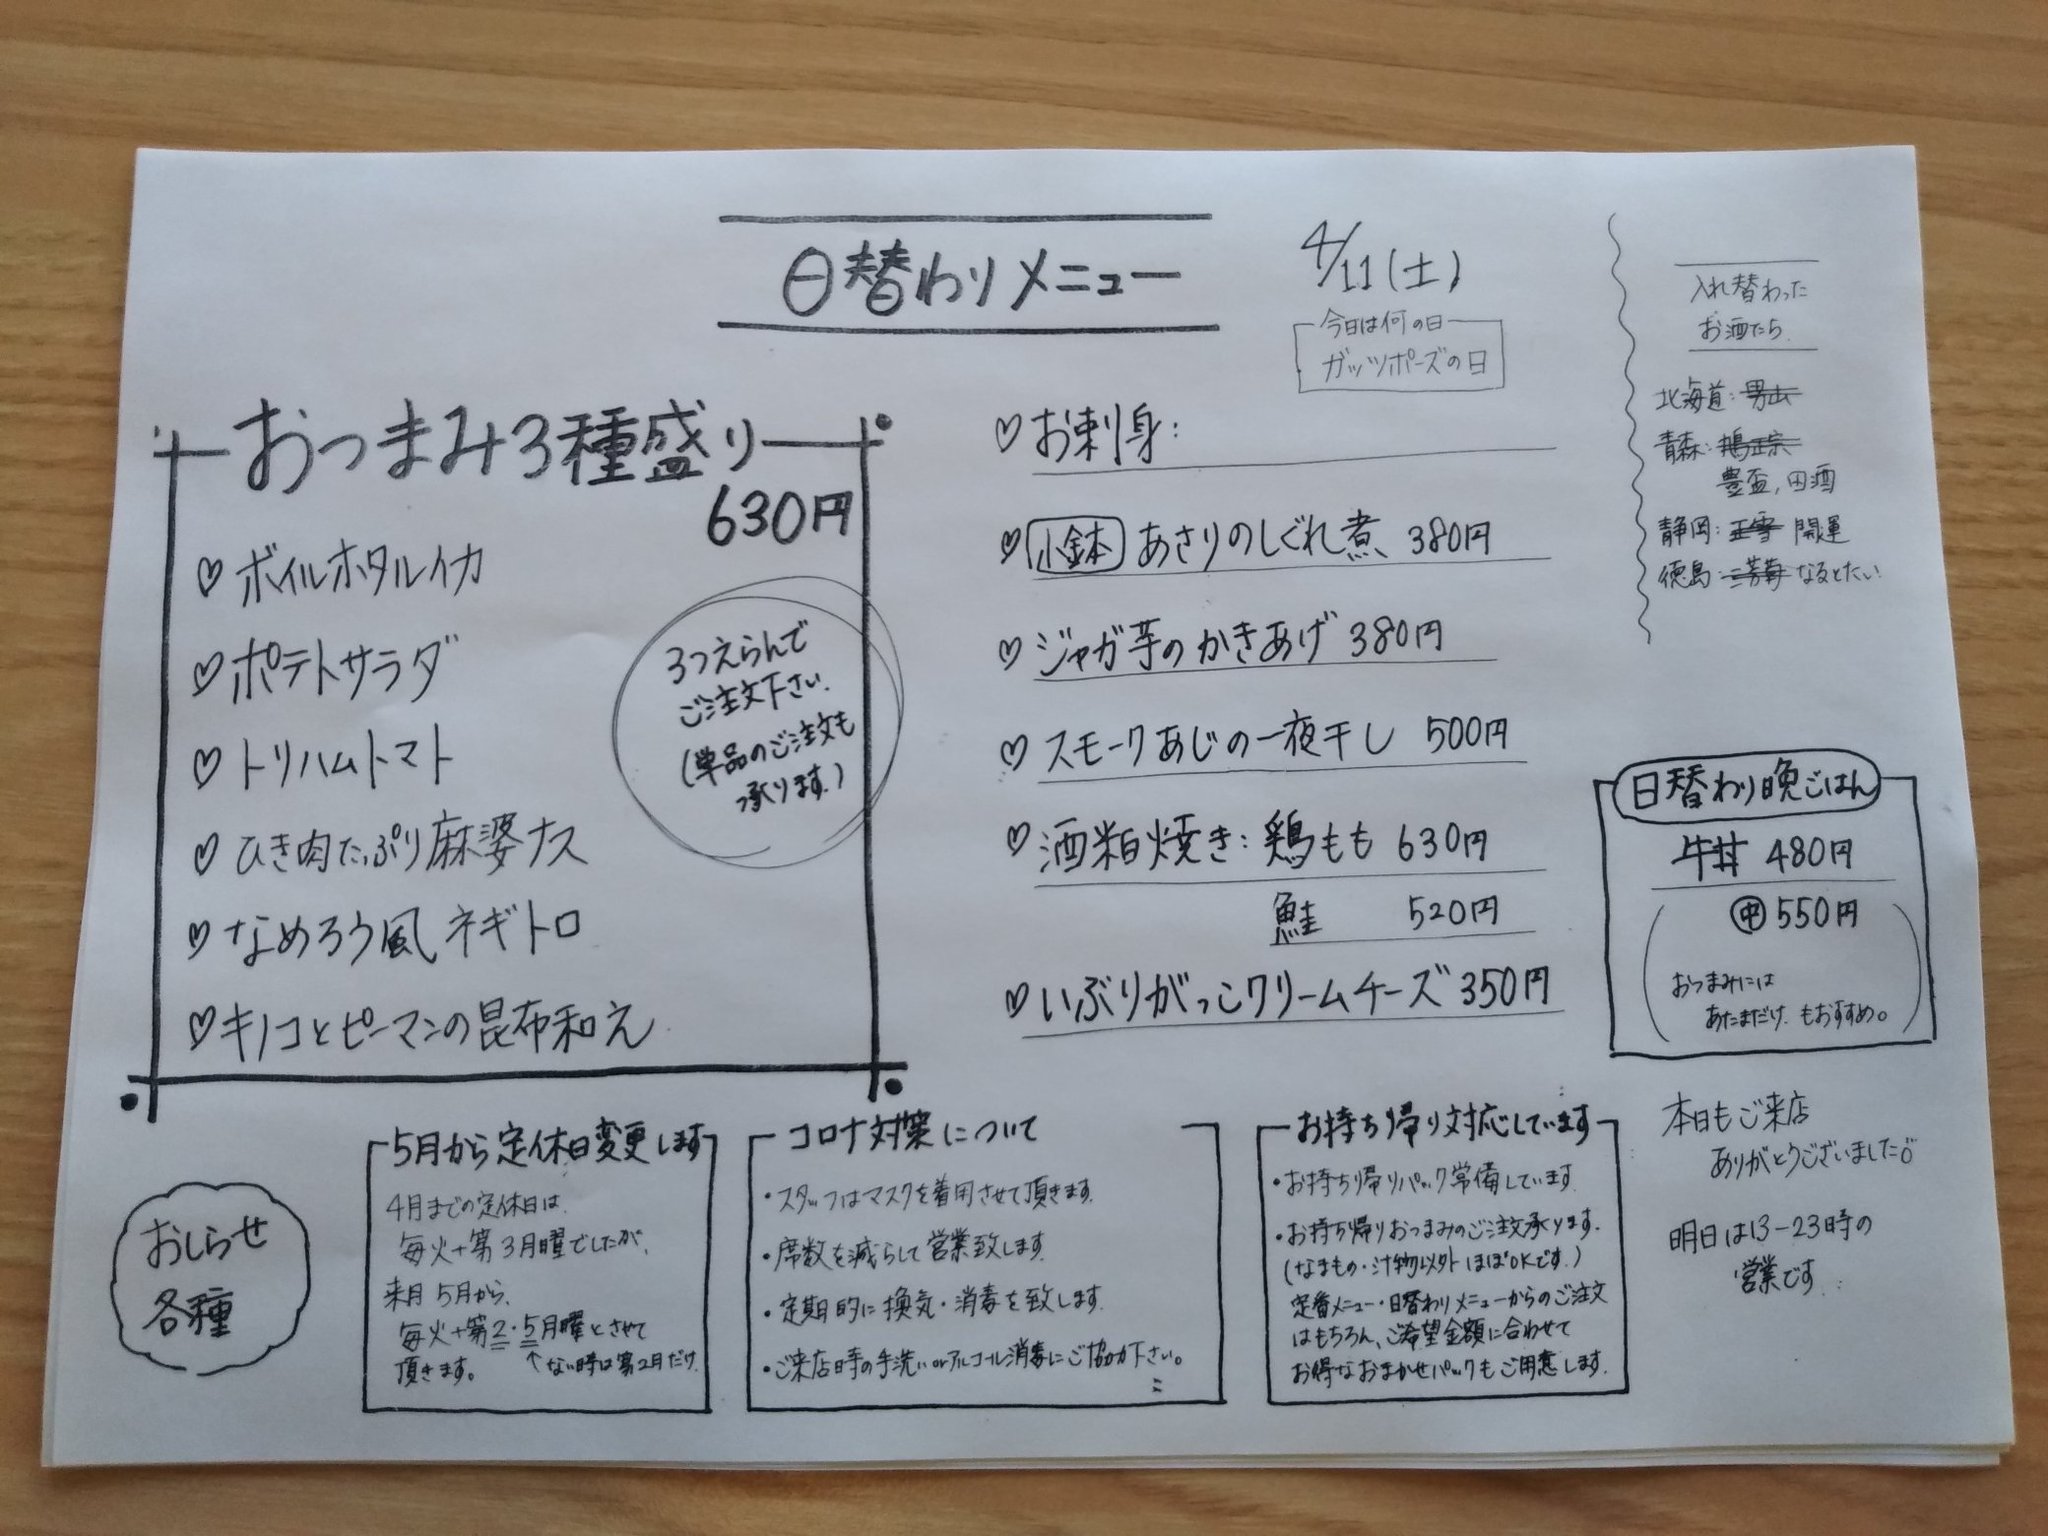 日替わりメニュー
4/11(土)
今日は何の日
ガッツポーズの日
おつまみ3種盛り
630円
♡ボイルホタルイカ
♡ポテトサラダ
♡トリハムトマト
♡ひき肉たっぷり麻婆ナス
♡なめろう風ネギトロ
♡キノコとピーマンの昆布和え
3つえらんで
ご注文下さい.
(単品のご注文も
承ります.)
♡お刺身:
♡小鉢 あさりのしぐれ煮 380円
♡ジャガ芋のかきあげ 380円
♡スモークあじの一夜干し 500円
♡酒粕焼き:鶏もも 630円
鮭 520円
♡いぶりがっこクリームチーズ 350円
入れ替わった
お酒たち
北海道:男山
青森:鳩正宗
豊盃,田酒
静岡:正雪 開運
徳島:三芳菊 なるとたい
日替わり晩ごはん
牛丼 480円
㊥550円
おつまみには
あたまだけ もおすすめ。
おしらせ
各種
5月から定休日変更します
4月までの定休日は、
毎火+第3月曜でしたが、
来月5月から、
毎火+第2・5月曜とさせて
頂きます。
↑ない時は第2月だけ
コロナ対策について
・スタッフはマスクを着用させて頂きます.
・席数を減らして営業致します.
・定期的に換気・消毒を致します.
・ご来店時の手洗いorアルコール消毒にご協力下さい。
お持ち帰り対応しています
・お持ち帰りパック常備しています.
・お持ち帰りおつまみのご注文承ります.
(なまもの・汁物以外ほぼOKです.)
定番メニュー・日替わりメニューからのご注文
はもちろん、ご希望金額に合わせて
お得なおまかせパックもご用意します.
本日もご来店
ありがとうございました。
明日は13-23時の
営業です.